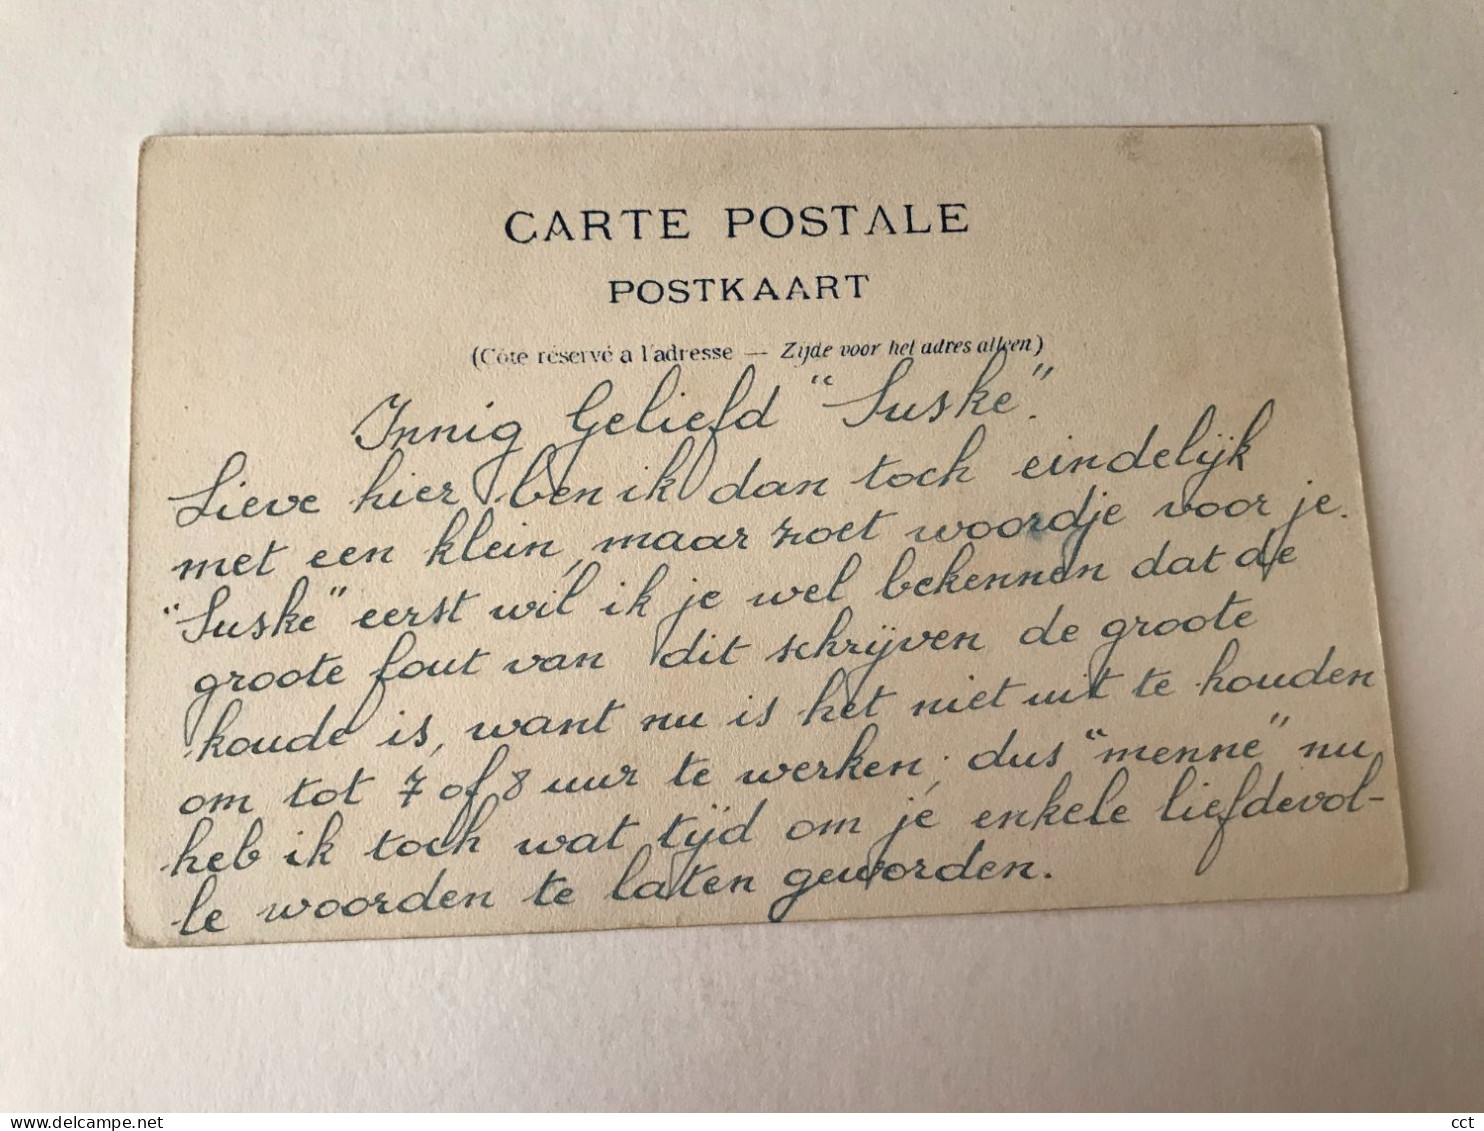 CARTE POSTALE
POSTKAART
(Côté réservé a l'adresse — Zijde voor het adres alleen)
Innig Geliefd "Suske".
Lieve hier ben ik dan toch eindelijk
met een klein, maar zoet woordje voor je.
"Suske" eerst wil ik je wel bekennen dat de
groote fout van dit schrijven de groote
koude is, want nu is het niet uit te houden
om tot 7 of 8 uur te werken; dus "menne" nu
heb ik toch wat tijd om je enkele liefdevol-
le woorden te laten geworden.
delcampe.net
cct